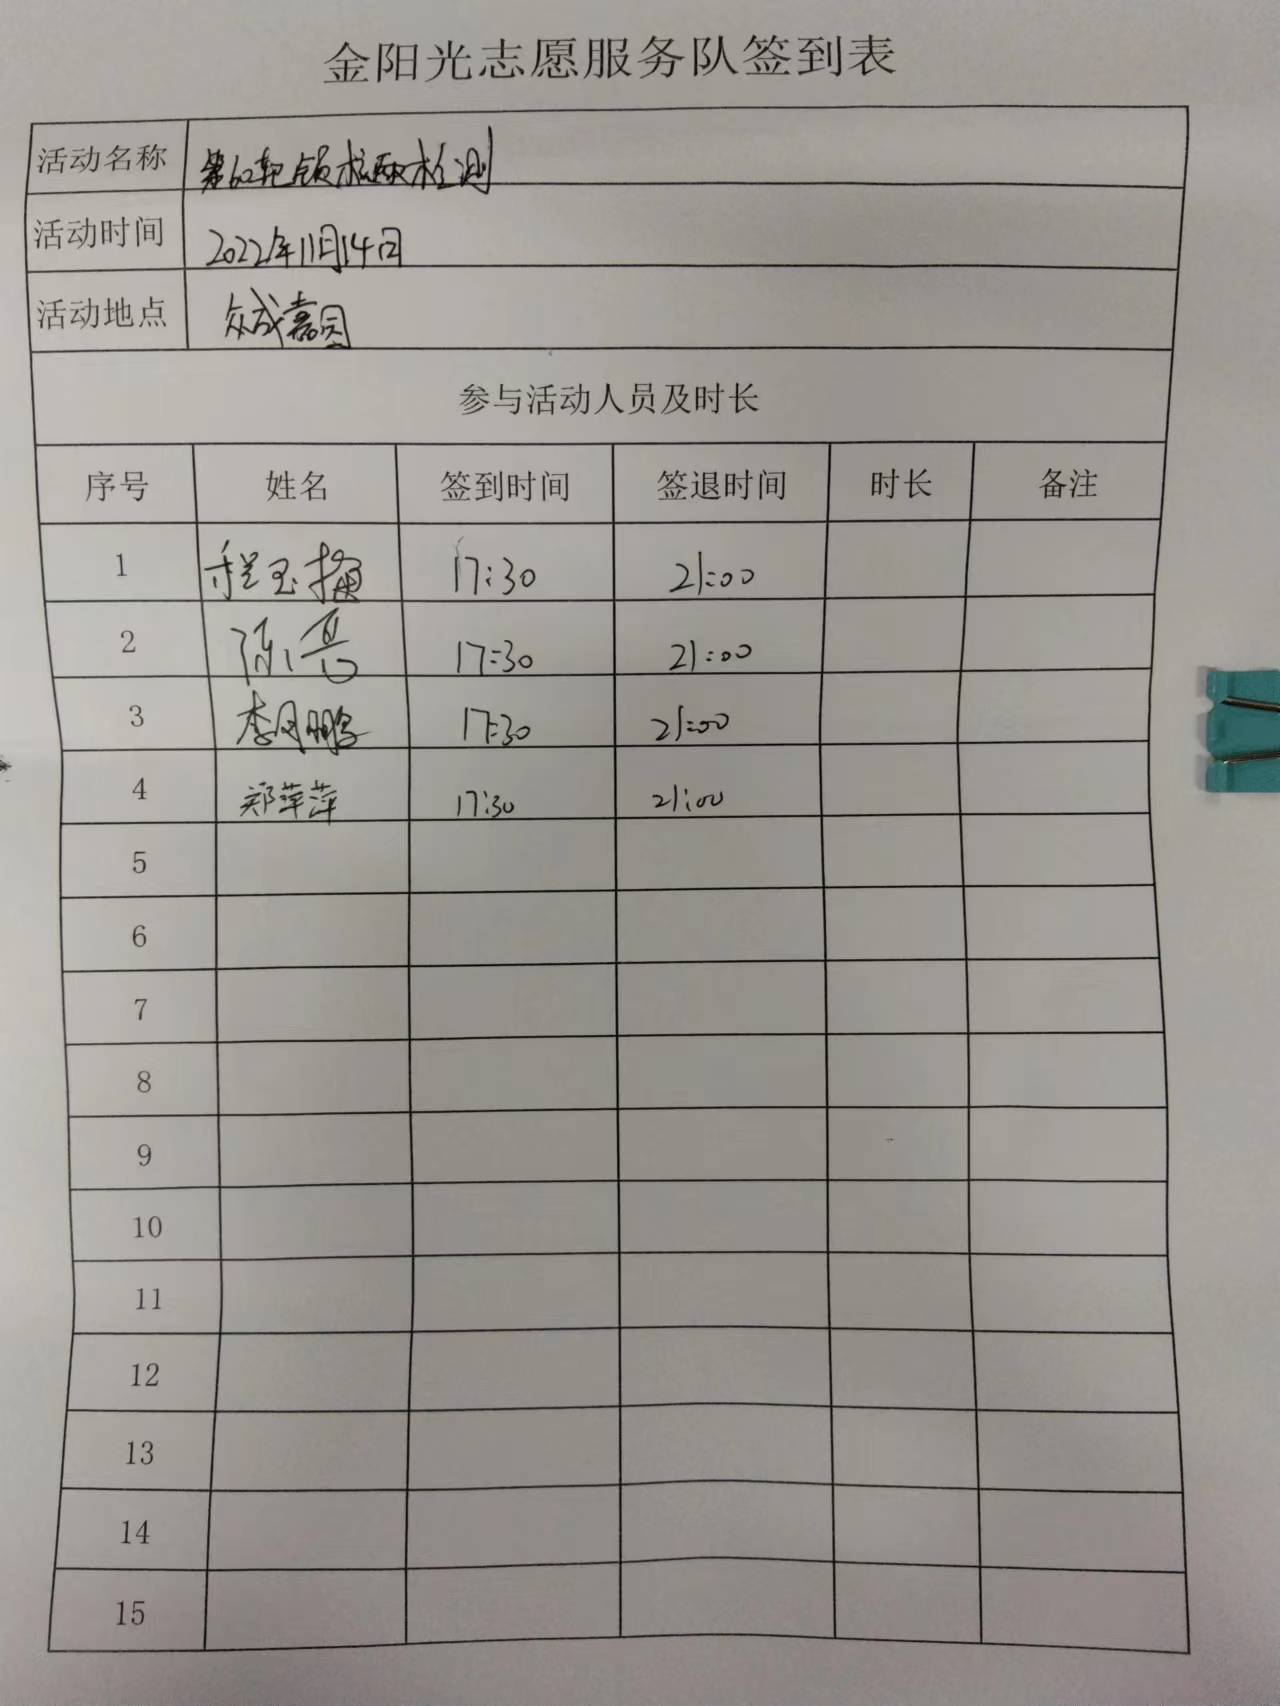 金阳光志愿服务队签到表
活动名称 第62轮全员核酸检测
活动时间 2022年11月14日
活动地点 众成嘉园
参与活动人员及时长
序号 姓名 签到时间 签退时间 时长 备注
1 程玉 17:30 21:00
2 陈亮 17:30 21:00
3 李月鹏 17:30 21:00
4 郑萍萍 17:30 21:00
5
6
7
8
9
10
11
12
13
14
15